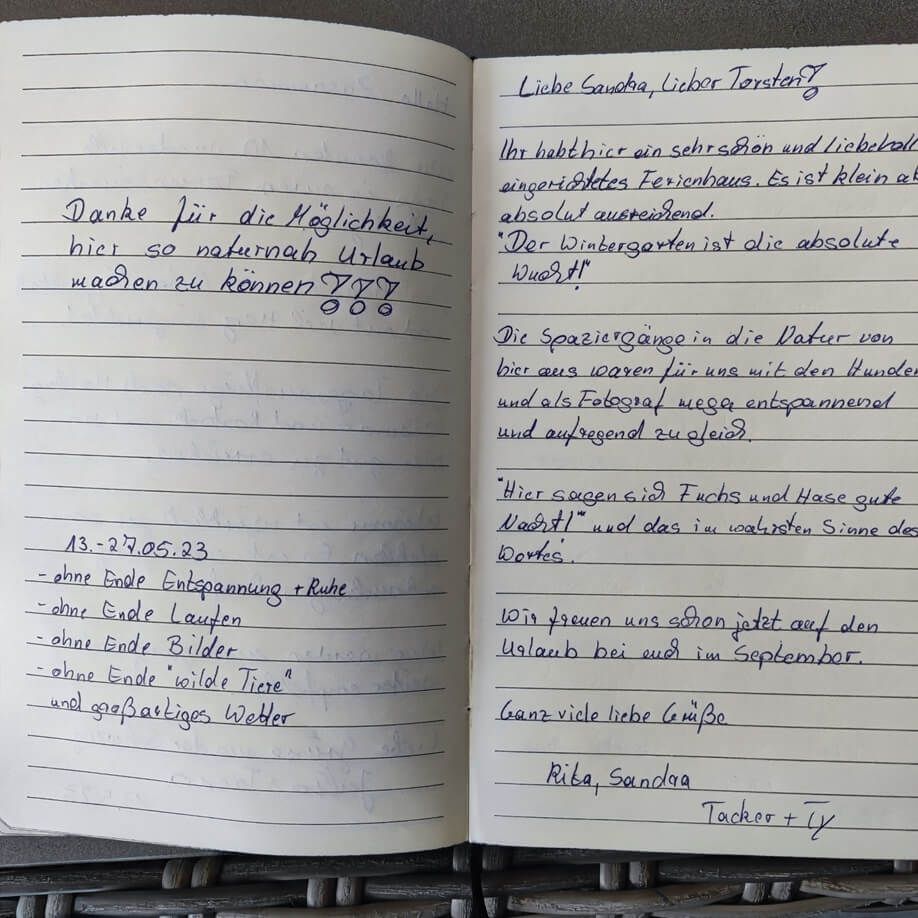 Danke für die Möglichkeit,
hier so naturnah Urlaub
machen zu können!!!
13.-27.05.23
- ohne Ende Entspannung + Ruhe
- ohne Ende Laufen
- ohne Ende Bilder
- ohne Ende "wilde Tiere"
und großartiges Wetter
Liebe Sandra, Lieber Torsten!
Ihr habt hier ein sehr schön und liebevoll
eingerichtetes Ferienhaus. Es ist klein ab
absolut ausreichend.
"Der Wintergarten ist die absolute
Wucht!"
Die Spaziergänge in die Natur von
hier aus waren für uns mit den Hunden
und als Fotograf mega entspannend
und aufregend zu gleich.
"Hier sagen sich Fuchs und Hase gute
Nacht!" und das im wahrsten Sinne des
Wortes.
Wir freuen uns schon jetzt auf den
Urlaub bei euch im September.
Ganz viele liebe Grüße
Rita, Sandra
Tacker + Ty